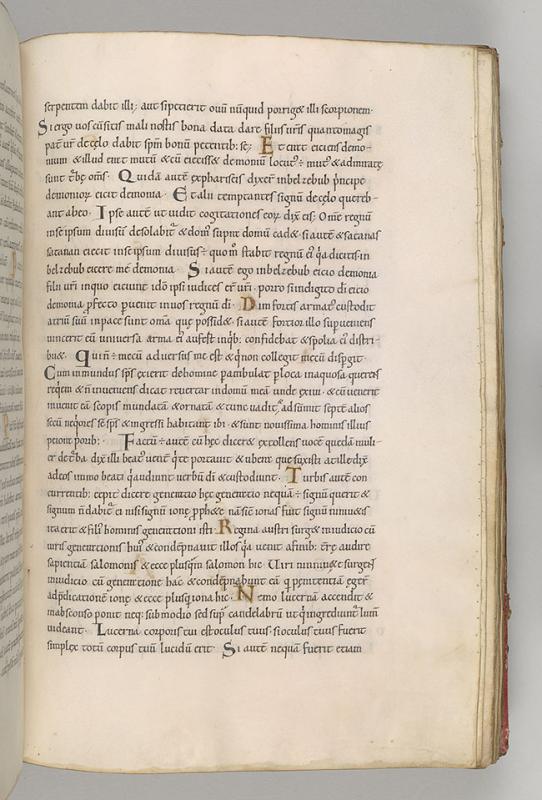 serpentem dabit illi; aut si petierit ovū nūquid porriget illi scorpionem.
Si ergo vos cū sitis mali nostis bona data dare filiis vr̄is quantomagis
pat̄ vr̄ de cęlo dabit sp̄m bonū petentib: se; Et erat eiciens demo-
nium & illud erat mutū & cū eiecisset demoniū locut' ÷ mut' & admiratę
sunt t̄bę om̄s. Quidā autē ex phariseis dixer̄ in belzebub p̄ncipe
demonior̄ eicit demonia. Et alii temptantes signū de cęlo quereb-
ant ab eo. Ipse autē ut vidit cogitationes eor̄ dix̄ eis; Om̄e regnū
in se ipsum divisū desolabit̄ & dom' supra domū cad&. si autē & satanas
satanan eiecit in se ipsum divisus ÷ quom̄ stabit regnū ei' q̄a dicitis in
belzebub eicere me demonia. Si autē ego in belzebub eicio demonia
filii vr̄i in quo eiciunt ido ipsi iudices er̄ vr̄i. porro si in digito dī eicio
demonia p̄fecto p̄venit in vos regnū dī. Dum fortis armat' custodit
atriū suū in pace sunt om̄a quę possid&. si autē fortior illo superveniens
vincerit eū universa arma ei' aufert in qb: confidebat & spolia ei' distri-
bu&. Qui n̄ ÷ mecū adversus me est & q̄ non colligit mecū disp̄git.
Cum inmundus sp̄s exierit de homine p̄ambulat p̄ loca inaquosa querens
requiem & n̄ inveniens dicit revertar in domum meā unde exivi. & cū venerit
invenit eā scopis mundatā & ornatā & tunc vadit & adsumit septē alios
secū neqores se sp̄s & ingressi habitant ibi. & sunt novissima hominis illius
peiora priorib:. Factū ÷ autē cū hęc diceret extollens vocē quedā muli-
er de t̄ba. dix̄ illi beat' vent̄ q̄ te portavit & ubera que suxisti at ille dix̄
adeos immo beati q̄ audiunt verbū dī & custodiunt. Turbis autē con
currentib: cępit dicere generatio hęc generatio nequā ÷ signū querit &
signum n̄ dabit̄ ei nisi signū ionę pph&ę nā sic̄ ionas fuit signū ninivitis
ita erit & fili' hominis generationi isti. Regina austri surg& in iudicio cū
viris generationis hui' & condēpnavit illos q̄a venit a finib: t̄rę audire
sapientiā salomonis & ecce plusq̄m salomon hic. Viri ninivitę surgent
in iudicio cū generatione hac & condēpnabunt eā q̄ penitentiā eger̄
ad p̄dicationē ionę & ecce plusq̄ iona hic. Nemo lucernā accendit &
in absconso ponit neq: sub modio sed sup̄ candelabrū ut q̄ ingrediunt̄ lum̄
videant. Lucerna corporis tui est oculus tuus. si oculus tuus fuerit
simplex totū corpus tuū lucidū erit. Si autē nequā fuerit etiam